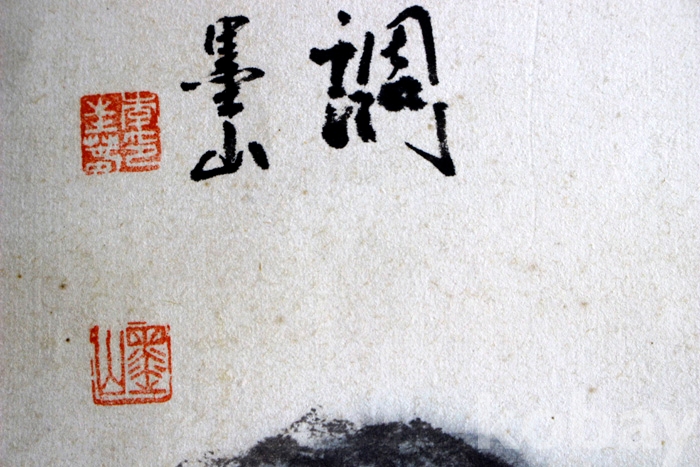 調
墨山
墨山
kobay